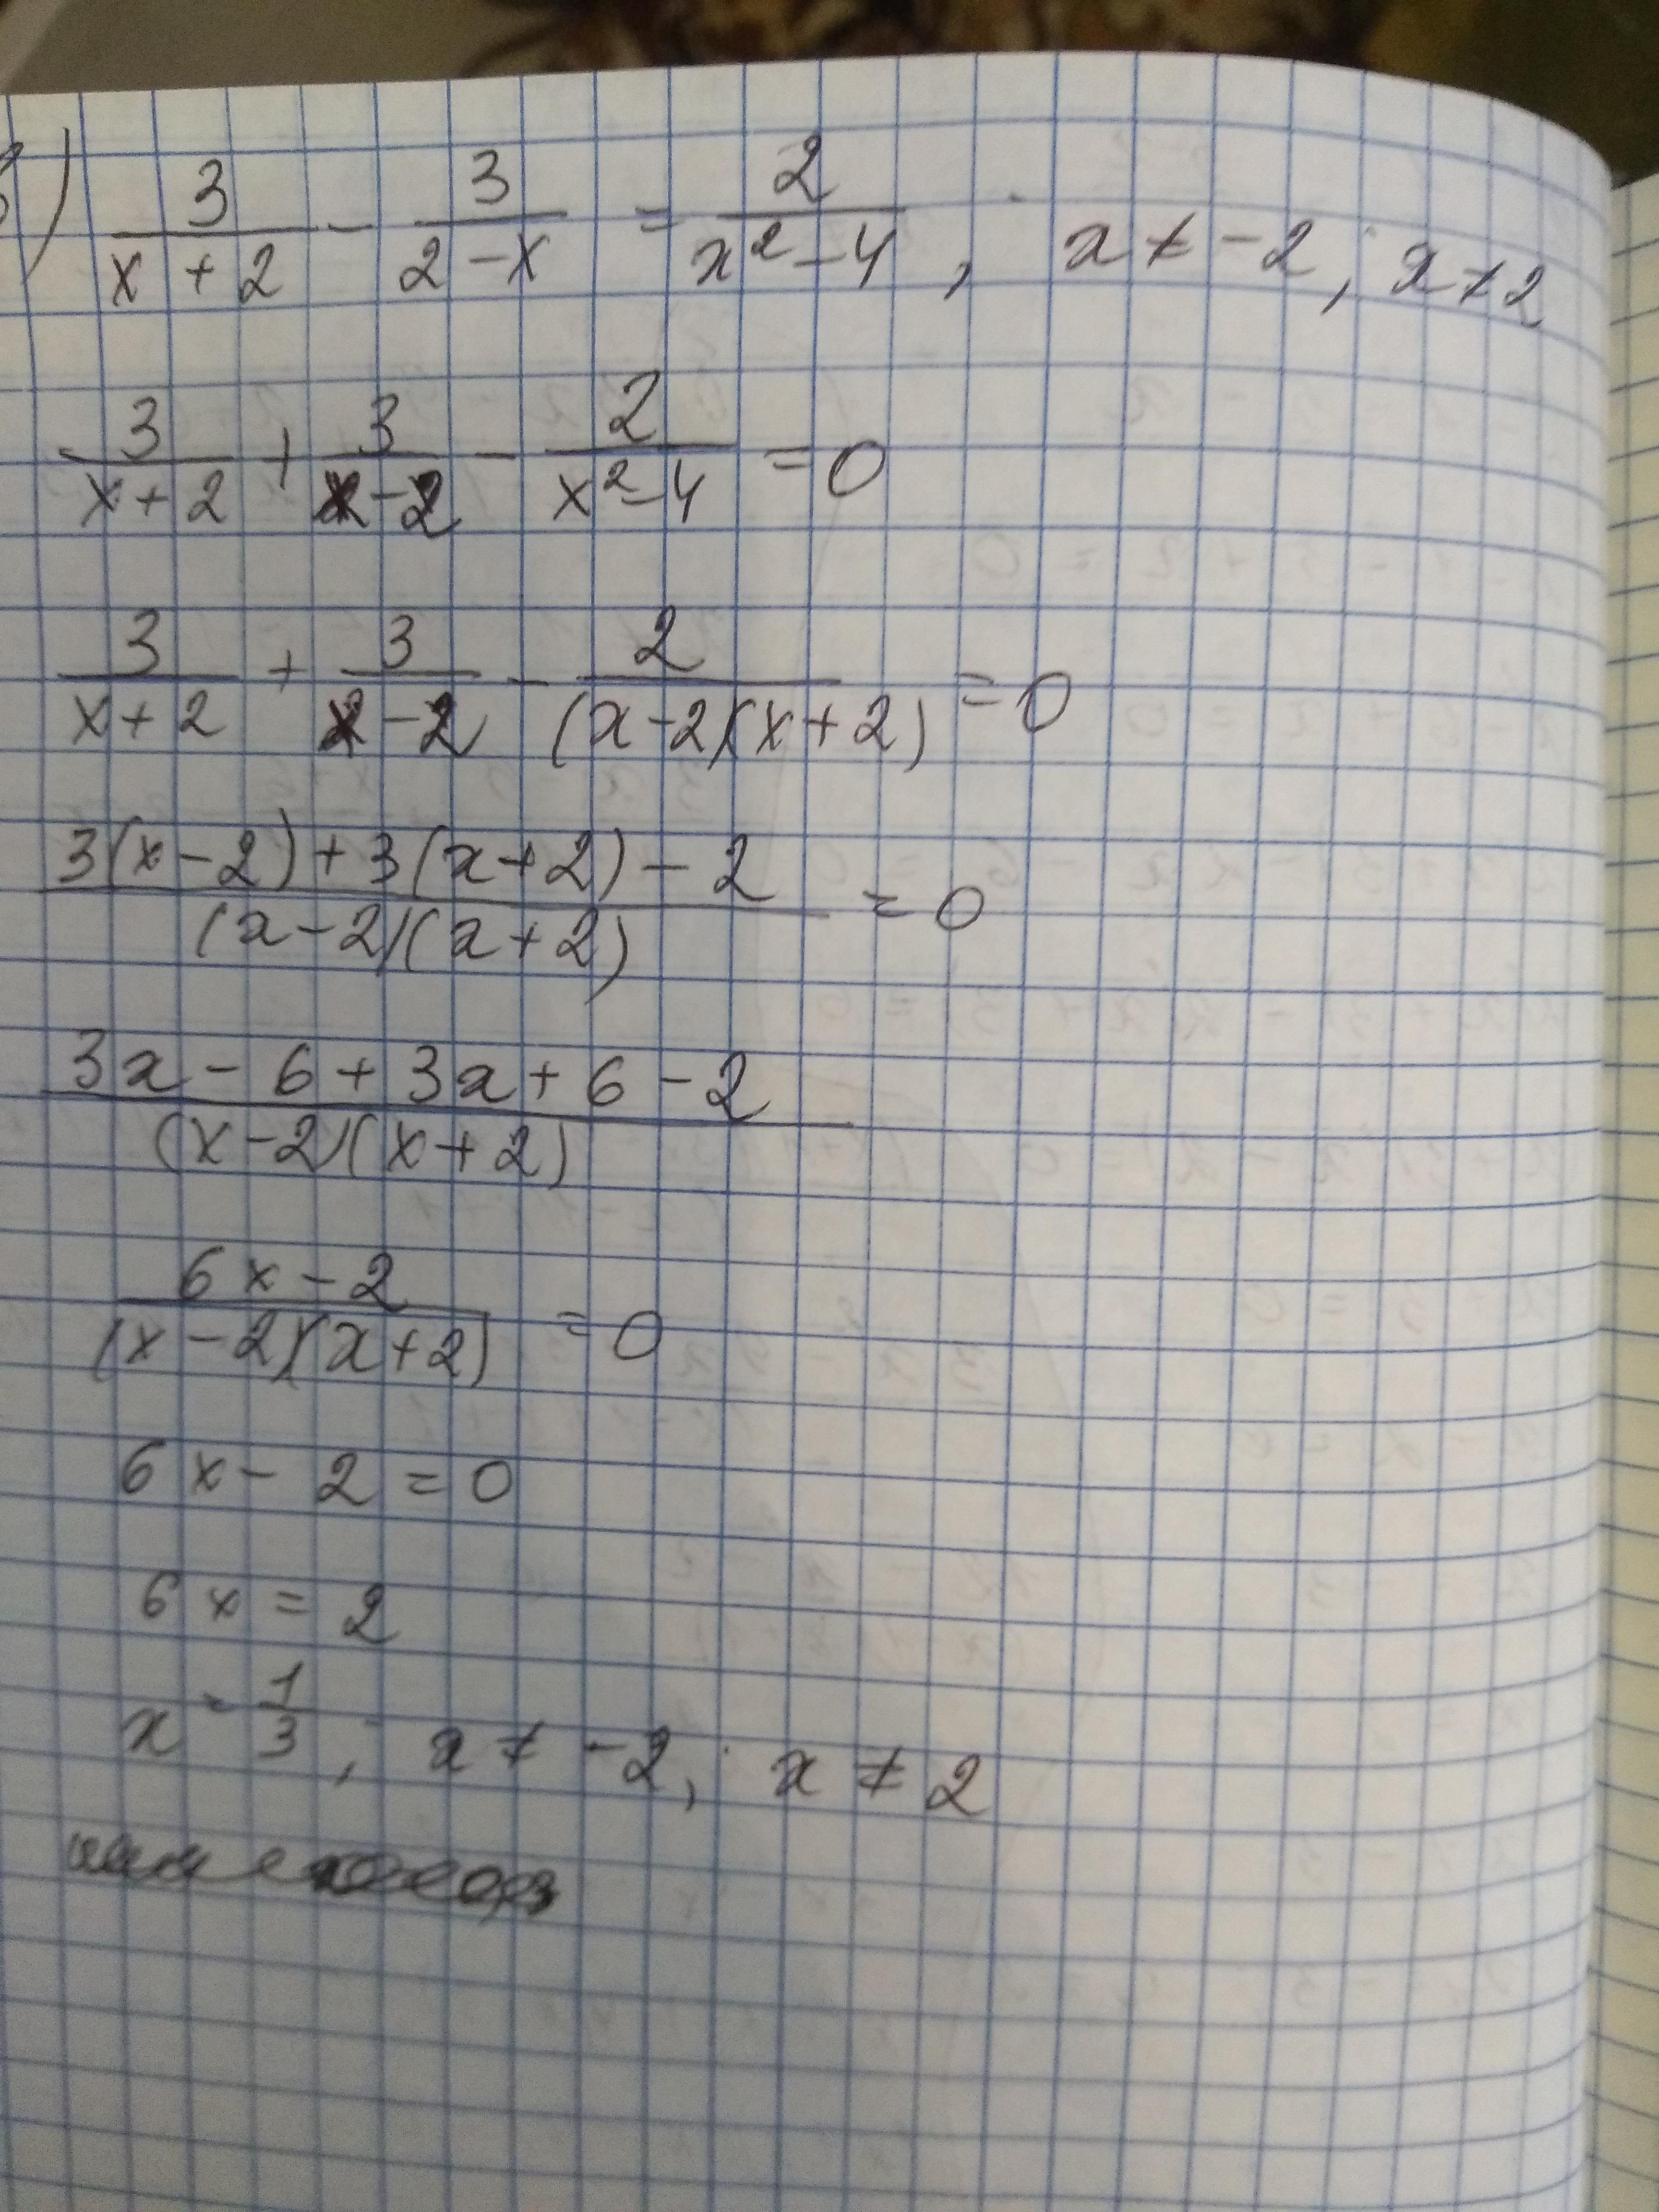 3) 3/(x+2) - 3/(2-x) = 2/(x²-4), x ≠ -2; x ≠ 2
3/(x+2) + 3/(x-2) - 2/(x²-4) = 0
3/(x+2) + 3/(x-2) - 2/((x-2)(x+2)) = 0
(3(x-2)+3(x+2)-2)/((x-2)(x+2)) = 0
(3x-6+3x+6-2)/((x-2)(x+2))
(6x-2)/((x-2)(x+2)) = 0
6x-2=0
6x=2
x = 1/3; x ≠ -2; x ≠ 2